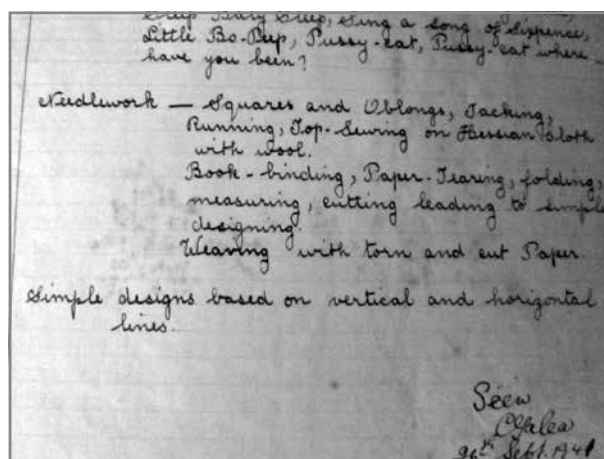 Sleep Baby Sleep, Sing a song of Sixpence,
Little Bo-Peep, Pussy-cat, Pussy-cat where
have you been?
Needlework — Squares and Oblongs, Tacking,
Running, Top-Sewing on Hessian Cloth
with wool.
Book-binding, Paper-Tearing, folding,
measuring, cutting leading to simple
designing.
Weaving with torn and cut Paper.
Simple designs based on vertical and horizontal
lines.
Seen
26th Sept. 1941